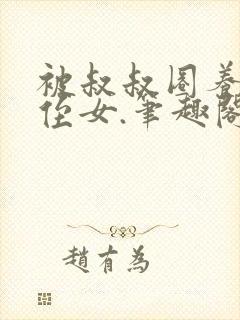 被叔叔圈養
侄女.筆趣閣
趙有為